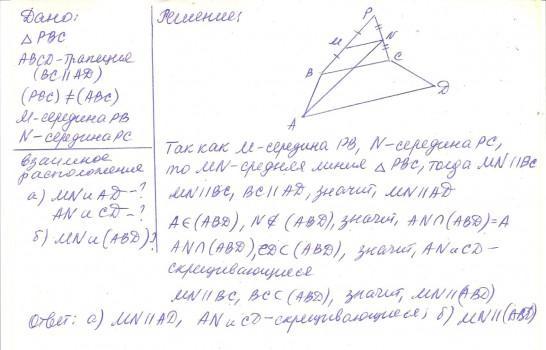 Дано:
△ PBC
ABCD-трапеция
(BC || AD)
(PBC) ≠ (ABC)
M-середина PB
N-середина PC
Взаимное
расположение
а) MN и AD-?
AN и CD-?
б) MN и (ABD)?
Решение:
P
M
N
B
C
D
A
Так как M-середина PB, N-середина PC,
то MN-средняя линия △ PBC, тогда MN || BC
MN || BC, BC || AD, значит, MN || AD
A∈(ABD), N∉(ABD), значит, AN∩(ABD)=A
AN∩(ABD), CD⊂(ABD), значит, AN и CD-
скрещивающиеся
MN || BC, BC⊂(ABD), значит, MN || (ABD)
Ответ: а) MN || AD, AN и CD-скрещивающиеся; б) MN || (ABD)